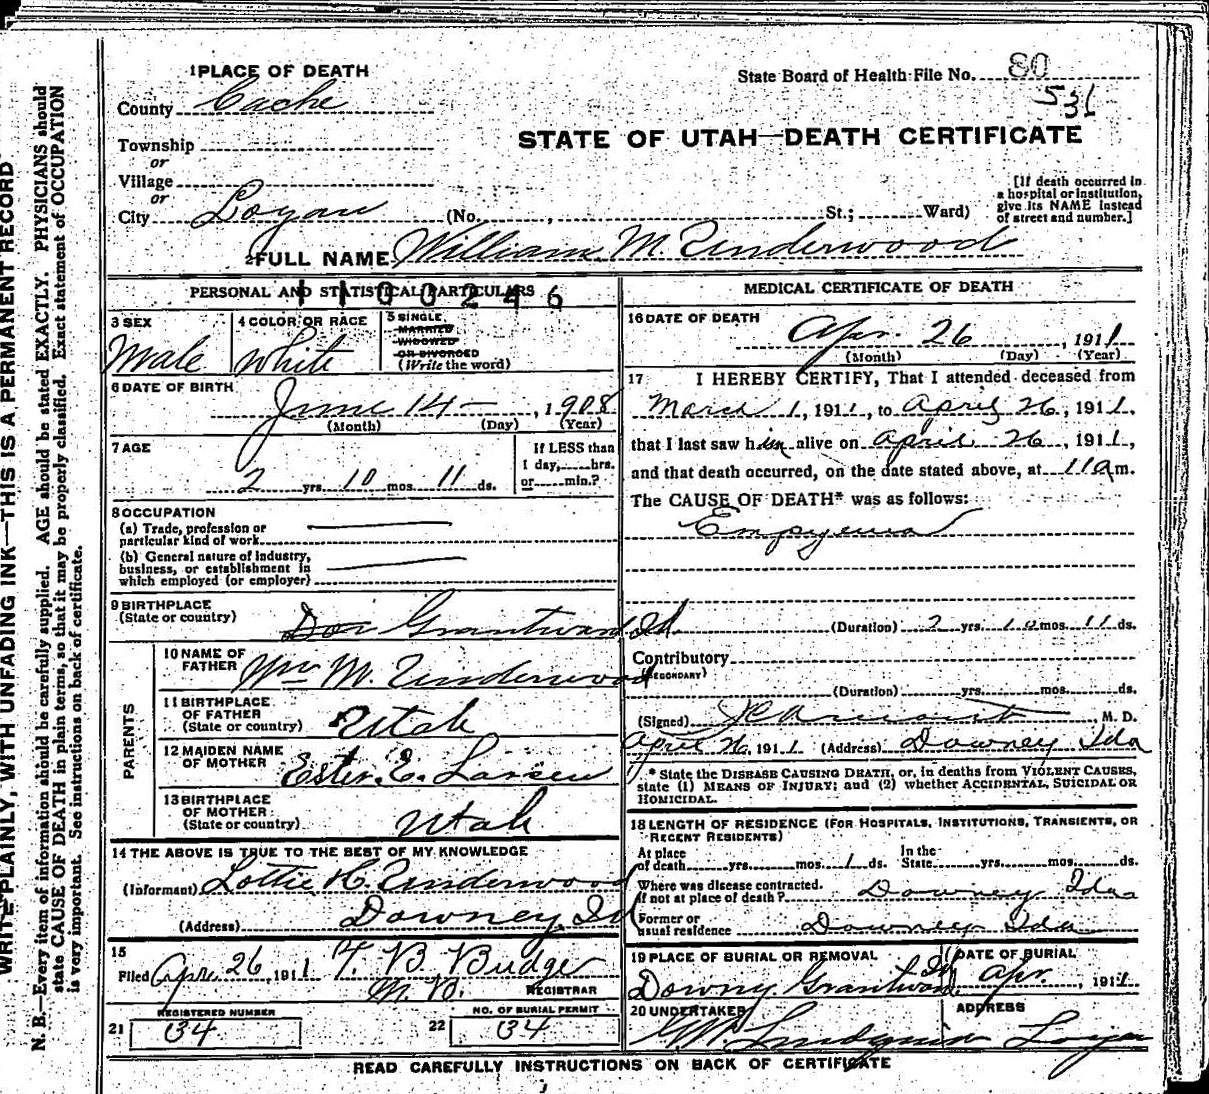 WRITE PLAINLY, WITH UNFADING INK—THIS IS A PERMANENT RECORD
N. B.—Every item of information should be carefully supplied. AGE should be stated EXACTLY. PHYSICIANS should
state CAUSE OF DEATH in plain terms, so that it may be properly classified. Exact statement of OCCUPATION
is very important. See instructions on back of certificate.
1 PLACE OF DEATH
State Board of Health File No. 80
531
County Cache
STATE OF UTAH—DEATH CERTIFICATE
Township
or
Village
or
City Logan (No. , St.; Ward)
[If death occurred in
a hospital or institution,
give its NAME instead
of street and number.]
2 FULL NAME William M. Underwood
PERSONAL AND STATISTICAL PARTICULARS
1100246
3 SEX
Male
4 COLOR OR RACE
White
5 SINGLE
MARRIED
WIDOWED
OR DIVORCED
(Write the word)
6 DATE OF BIRTH
June 14 – , 1908
(Month) (Day) (Year)
7 AGE
2 yrs. 10 mos. 11 ds.
If LESS than
1 day, hrs.
or min.?
8 OCCUPATION
(a) Trade, profession or
particular kind of work
(b) General nature of industry,
business, or establishment in
which employed (or employer)
9 BIRTHPLACE
(State or country)
Id.
PARENTS
10 NAME OF
FATHER
Wm M. Underwood
11 BIRTHPLACE
OF FATHER
(State or country)
Utah
12 MAIDEN NAME
OF MOTHER
Ester. E. Larsen
13 BIRTHPLACE
OF MOTHER
(State or country)
Utah
14 THE ABOVE IS TRUE TO THE BEST OF MY KNOWLEDGE
(Informant) Lottie H. Underwood
(Address) Downey, Id
15
Filed Apr. 26, 1911 T. B. Budge
M. D. REGISTRAR
REGISTERED NUMBER
21 34
NO. OF BURIAL PERMIT
22 34
MEDICAL CERTIFICATE OF DEATH
16 DATE OF DEATH
Apr. 26, 1911
(Month) (Day) (Year)
17 I HEREBY CERTIFY, That I attended deceased from
March 1, 1911, to April 26, 1911,
that I last saw him alive on April 26, 1911,
and that death occurred, on the date stated above, at 11 a m.
The CAUSE OF DEATH* was as follows:
Empyema
(Duration) 2 yrs. 10 mos. 11 ds.
Contributory
(SECONDARY)
(Duration) yrs. mos. ds.
(Signed) , M. D.
April 26, 1911 (Address) Downey Ida
* State the DISEASE CAUSING DEATH, or, in deaths from VIOLENT CAUSES,
state (1) MEANS OF INJURY; and (2) whether ACCIDENTAL, SUICIDAL OR
HOMICIDAL.
18 LENGTH OF RESIDENCE (FOR HOSPITALS, INSTITUTIONS, TRANSIENTS, OR
RECENT RESIDENTS)
At place
of death yrs. mos. 1 ds.
In the
State yrs. mos. ds.
Where was disease contracted.
if not at place of death? Downey Ida
Former or
usual residence Downey Ida
19 PLACE OF BURIAL OR REMOVAL
Downy
DATE OF BURIAL
Apr. , 1911
20 UNDERTAKER
ADDRESS
Logan
READ CAREFULLY INSTRUCTIONS ON BACK OF CERTIFICATE